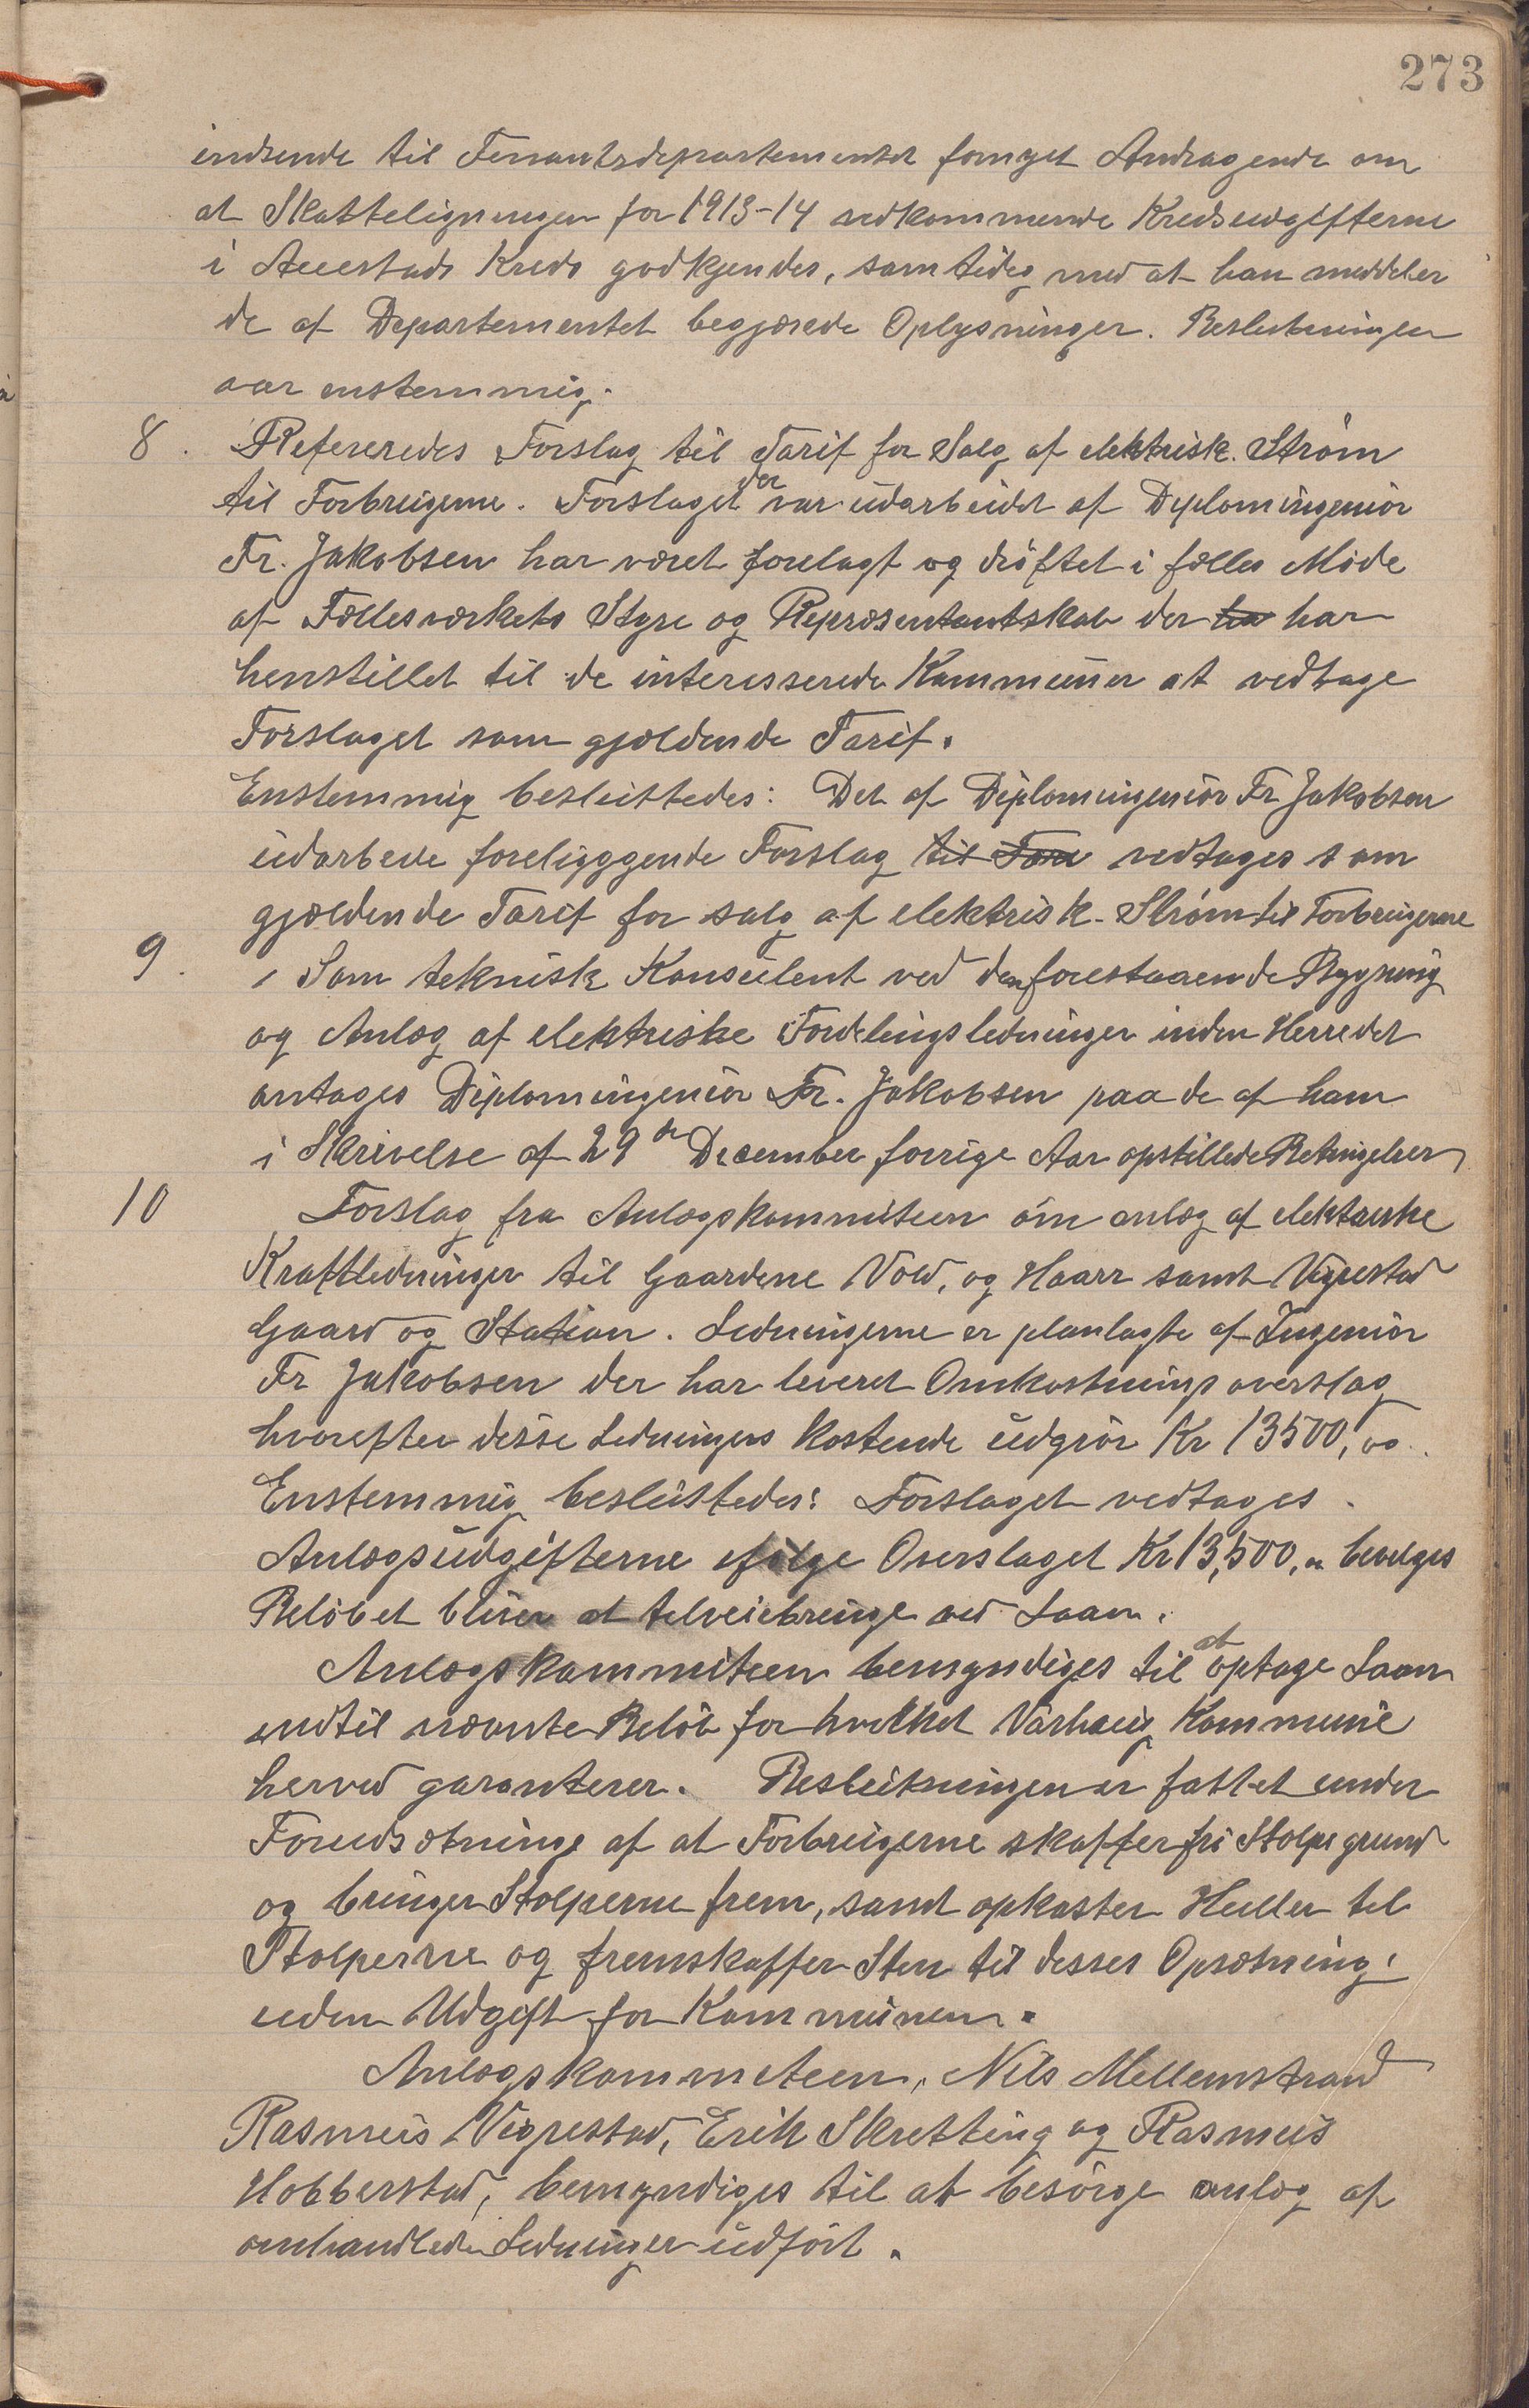 273
indsende til Finantsdepartementet fornyet Andragende om
at Skatteligningen for 1913-14 vedkommende Kredsudgifterne
i Auestads Kreds godkjendes, samtidig med at han meddeler
de af Departementet begjærede Oplysninger. Beslutningen
var enstemmig.
8. Refereredes Forslag til Tarif for Salg af elektrisk Strøm
til Forbrugerne. Forslaget der var udarbeidet af Diplomingeniør
Fr. Jakobsen har været forelagt og drøftet i fælles Møde
af Fællesværkets Styre og Repræsentantskab der ha har
henstillet til de interesserede Kommuner at vedtage
Forslaget som gjældende Tarif.
Enstemmig besluttedes: Det af Diplomingeniør Fr Jakobsen
udarbeide foreligggende Forslag til vedtages som
gjældende Tarif for salg af elektrisk Strøm til Forbrugerne
9. Som teknisk Konsulent ved den forestaaende Bygning
og Anlæg af elektriske Fordelingsledninger inden Herredet
antages Diplomingeniør Fr. Jakobsen paa de af ham
i Skrivelse af 29de December forrige Aar opstillede Betingelser
10 Forslag fra Anlægskommiteen om anlæg af elektriske
Kraftledninger til Gaardene Vold, og Haarr samt Vigrestad
Gaard og Station. Ledningerne er planlagte af Ingeniør
Fr Jakobsen der har leveret Omkostningsoverslag
hvorefter disse Ledningers Kostende udgjør Kr 13500,00.
Enstemmig besluttedes: Forslaget vedtages.
Anlægsudgifterne ifølge Overslaget Kr 13,500,00 bevilges
Beløbet bliver at tilveiebringe ved Laan.
Anlægskommiteen bemyndiges til at optage Laan
indtil nævnte Beløb for hvilket Varhaug Kommune
herved garanterer. Beslutningen er fattet under
Forudsætning af at Forbrugerne skaffer fri Stolpegrund
og bringer Stolperne frem, samt opkaster Huller til
Stolperne og fremskaffer Sten til desses Opsætning
uden Udgift for Kommunen.
Anlægskommiteen, Nils Mellemstrand
Rasmus Vigrestad, Erik Skretting og Rasmus
Hobberstad, bemyndiges til at besørge anlæg af
omhandlede Ledninger udført.